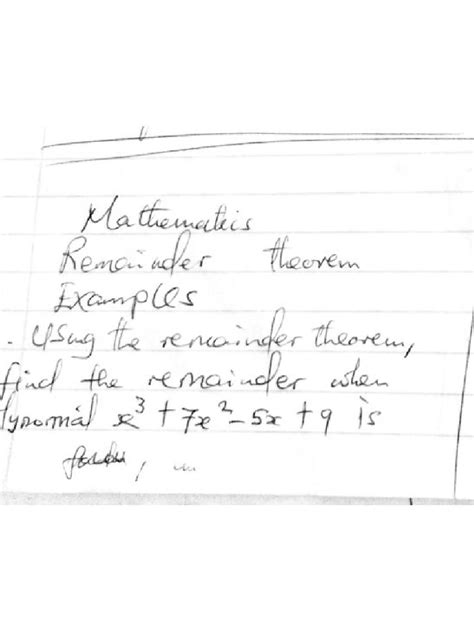 Mathematics
Remainder theorem
Examples
. Using the remainder theorem,
find the remainder when
lynomial x³ + 7x² - 5x + 9 is